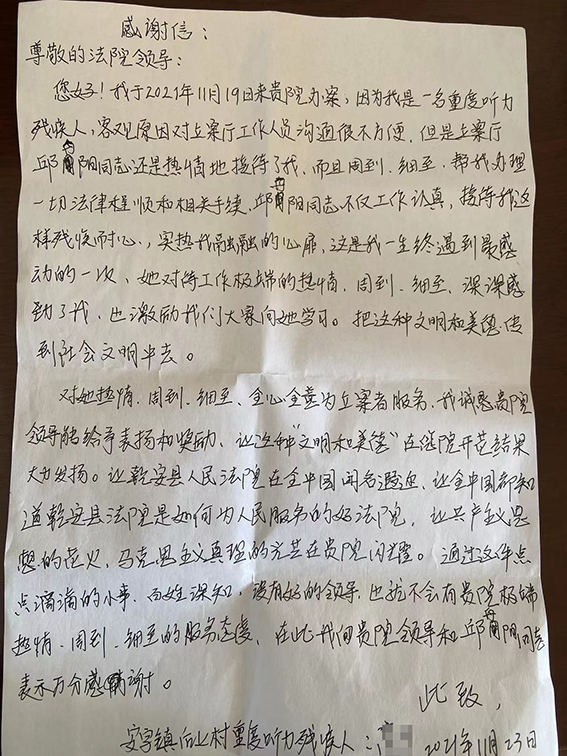 感谢信：
尊敬的法院领导：
您好！我于2021年11月19日来贵院办案，因为我是一名重度听力
残疾人，客观原因对立案厅工作人员沟通很不方便，但是立案厅
邱阳同志还是热情地接待了我，而且周到、细至、帮我办理
一切法律程顺和相关手续，邱阳同志不仅工作认真，接待我这
样残疾耐心，实热我融融的心扉，这是我一生终遇到最感
动的一次，她对待工作极端的热情、周到、细至、深深感
动了我，也激励我们大家向她学习。把这种文明和美德传
到社会文明中去。
对她热情、周到、细至、全心全意为立案者服务，我诚恳贵院
领导能给予表扬和奖励，让这种“文明和美德”在继院开花结果
大力发扬。让乾安县人民法院在全中国闻名遐迩，让全中国都知
道乾安县法院是如何为人民服务的好法院，让共产主义思
想的花火，马克思主义真理的光芒在贵院闪耀。通过这件点
点滴滴的小事，百姓深知，没有好的领导，也就不会有贵院极端
热情、周到、细至的服务态度，在此我向贵院领导和邱阳同志
表示万分感谢。
此致，
安字镇向上村重度听力残疾人：
2021年11月23日